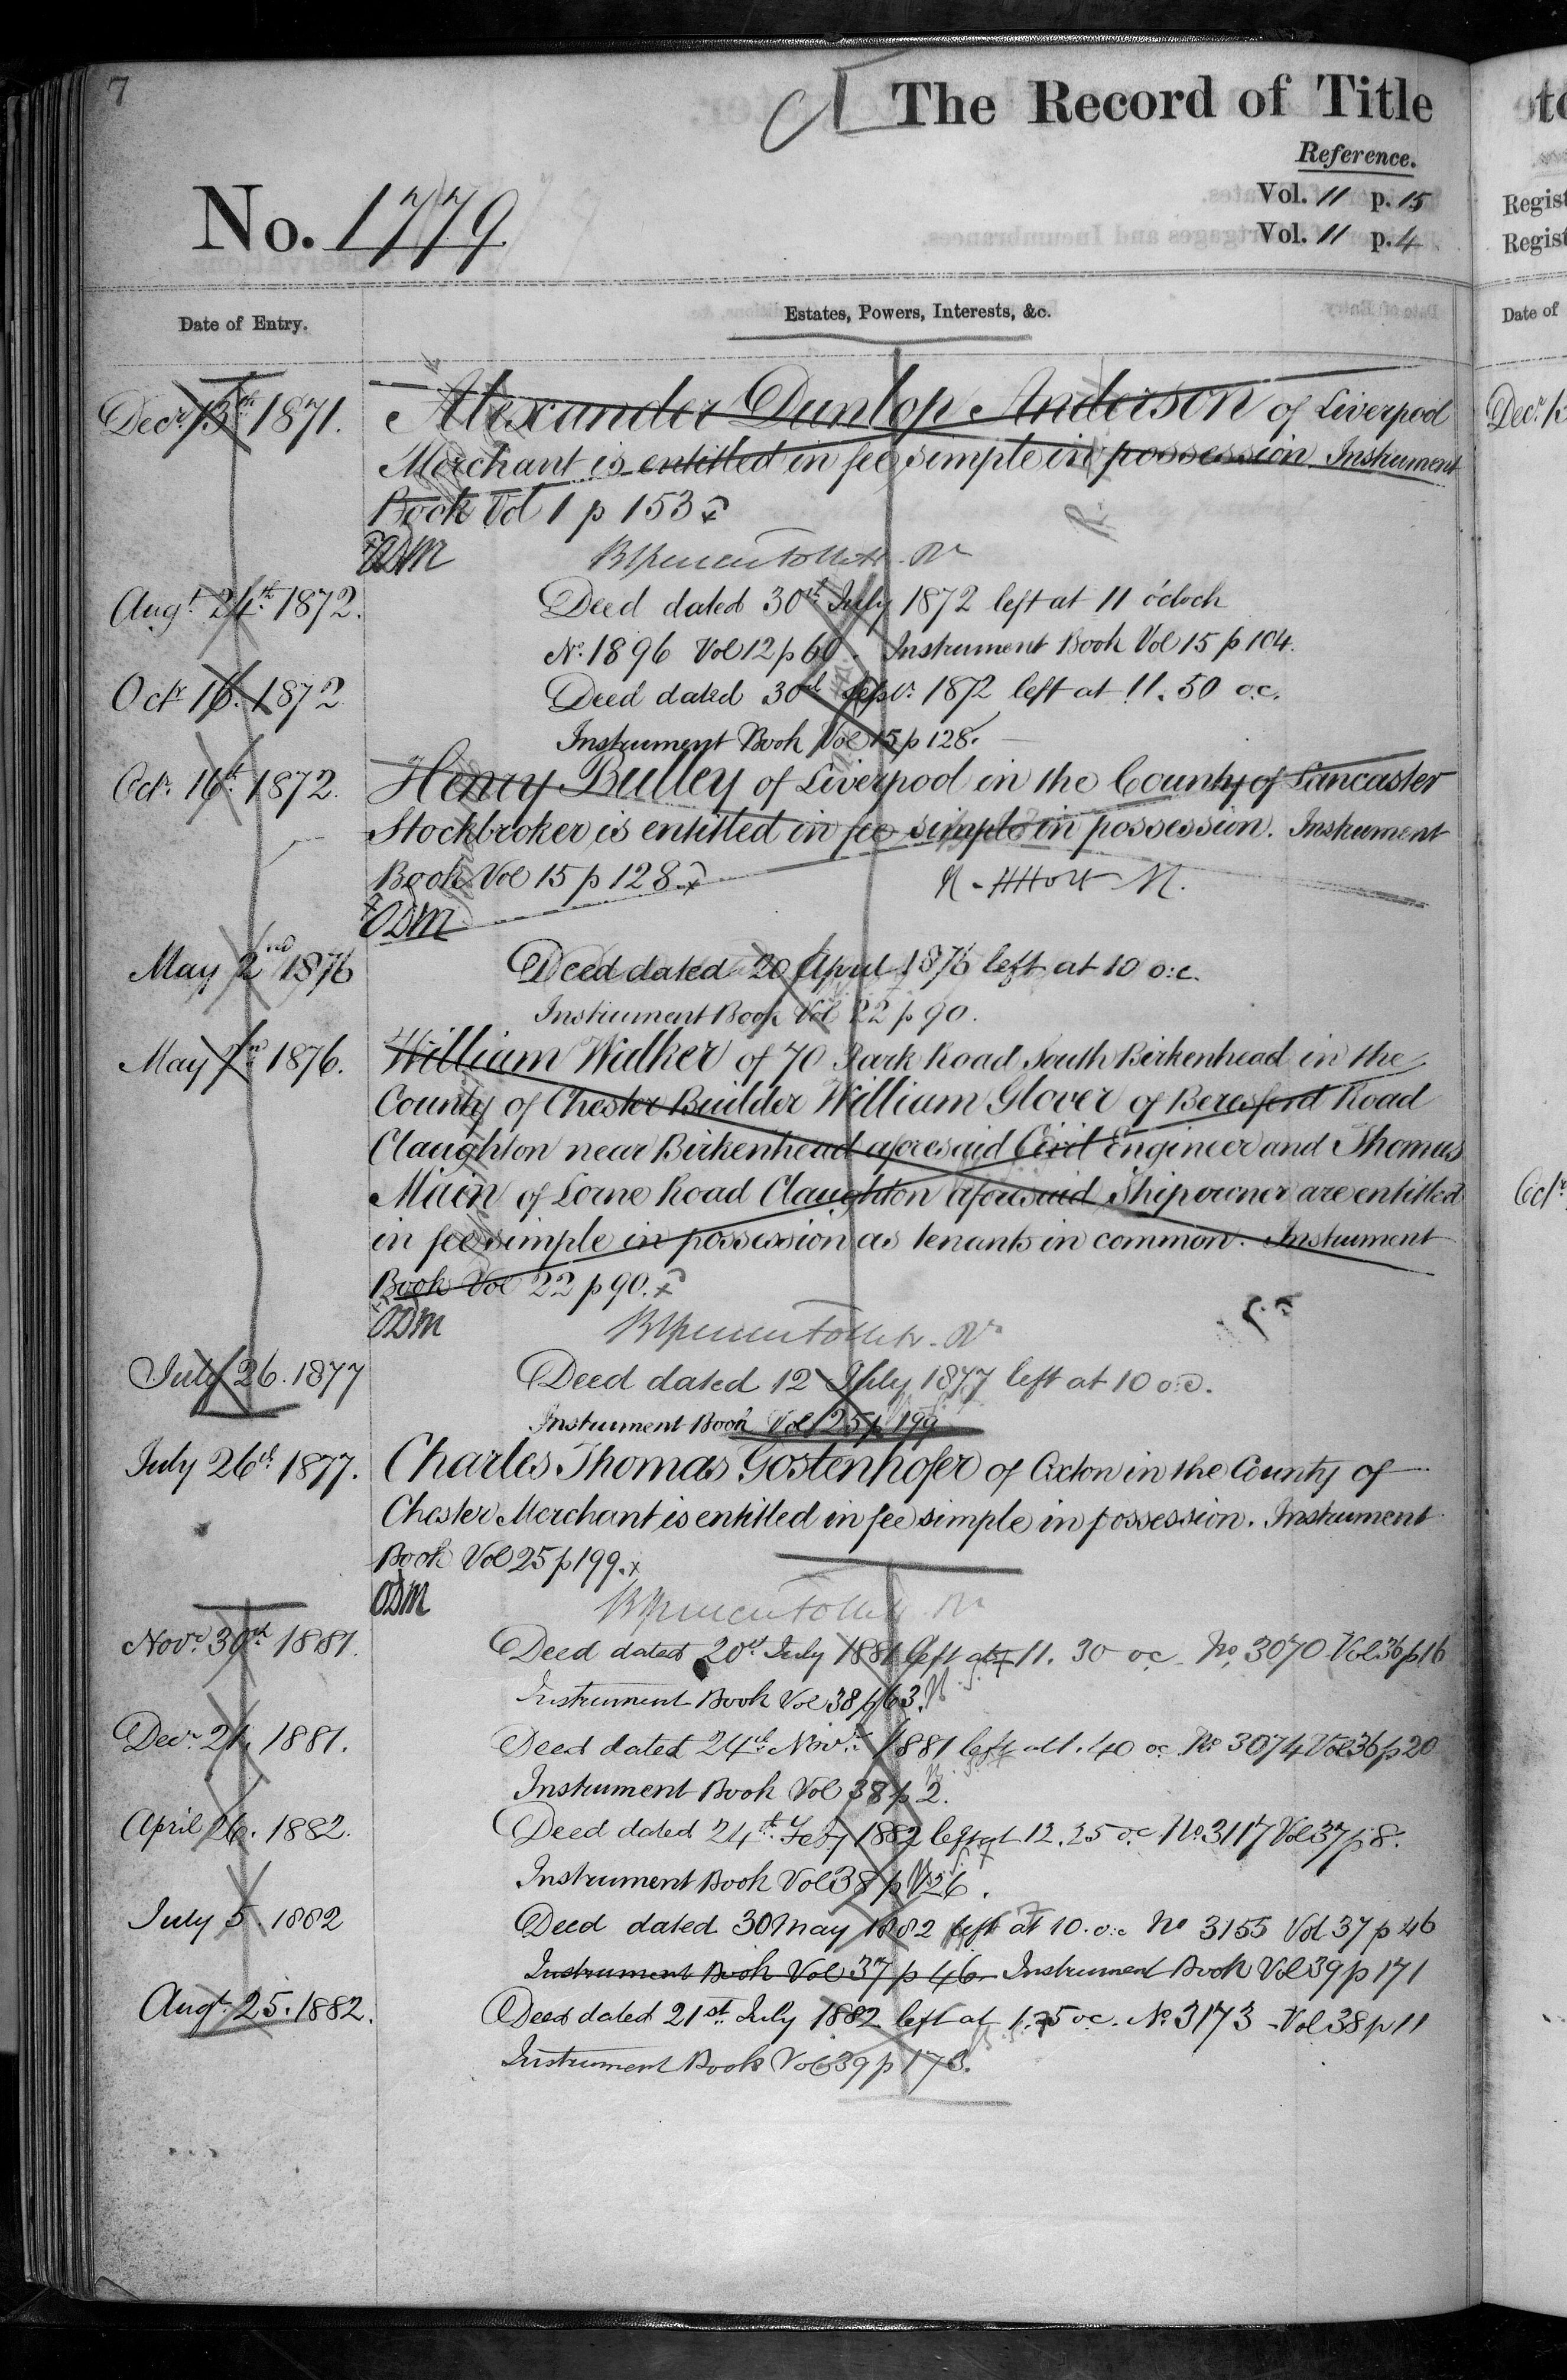 7
The Record of Title
Reference.
No. 1779
Vol. 11 p. 15
Vol. 11 p. 4
Date of Entry.
Estates, Powers, Interests, &c.
Decr. 13th 1871.
Alexander Dunlop Anderson of Liverpool
Merchant is entitled in fee simple in possession Instrument
Book Vol 1 p 153
Augt. 24th 1872.
Deed dated 30th July 1872 left at 11 o'clock
No. 1896 Vol 12 p 60. Instrument Book Vol 15 p 104.
Octr 16. 1872
Deed dated 30th Septr. 1872 left at 11.50 o.c.
Instrument Book Vol 15 p 128.
Octr. 16th 1872.
Henry Bulley of Liverpool in the County of Lancaster
Stockbroker is entitled in fee simple in possession. Instrument
Book Vol 15 p 128.
May 2nd 1876
Deed dated 20 April 1876 left at 10 o.c.
Instrument Book Vol 22 p 90.
May 2nd 1876.
William Walker of 70 Park Road South Birkenhead in the
County of Chester Builder William Glover of Beresford Road
Claughton near Birkenhead aforesaid Civil Engineer and Thomas
of Lorne Road Claughton aforesaid Shipowner are entitled
in fee simple in possession as tenants in common. Instrument
Book Vol 22 p 90.
July 26. 1877
Deed dated 12 July 1877 left at 10 o.c.
Instrument Book Vol 25 p 199
July 26th 1877.
Charles Thomas Gostenhofer of Oxton in the County of
Chester Merchant is entitled in fee simple in possession. Instrument
Book Vol 25 p 199.
Novr. 30th 1881.
Deed dated 20th July 1881 left at 11. 30 o.c. No. 3070 Vol 36 p 16
Instrument Book Vol 38 p 63.
Decr. 21. 1881.
Deed dated 24th Novr. 1881 left at 1.40 o.c. No 3074 Vol 36 p 20
Instrument Book Vol 38 p 2.
April 26. 1882.
Deed dated 24th Feby 1882 left at 12.25 o.c. No. 3117 Vol 37 p 8.
Instrument Book Vol 38 p 126.
July 5. 1882
Deed dated 30 May 1882 left at 10. o.c No 3155 Vol 37 p 46
Instrument Book Vol 37 p 46 Instrument Book Vol 39 p 171
Augt. 25. 1882.
Deed dated 21st. July 1882 left at o.c. No. 3173 Vol 38 p 11
Instrument Book Vol 39 p 173.
Regist
Regist
Date of
Decr. 13
Octr